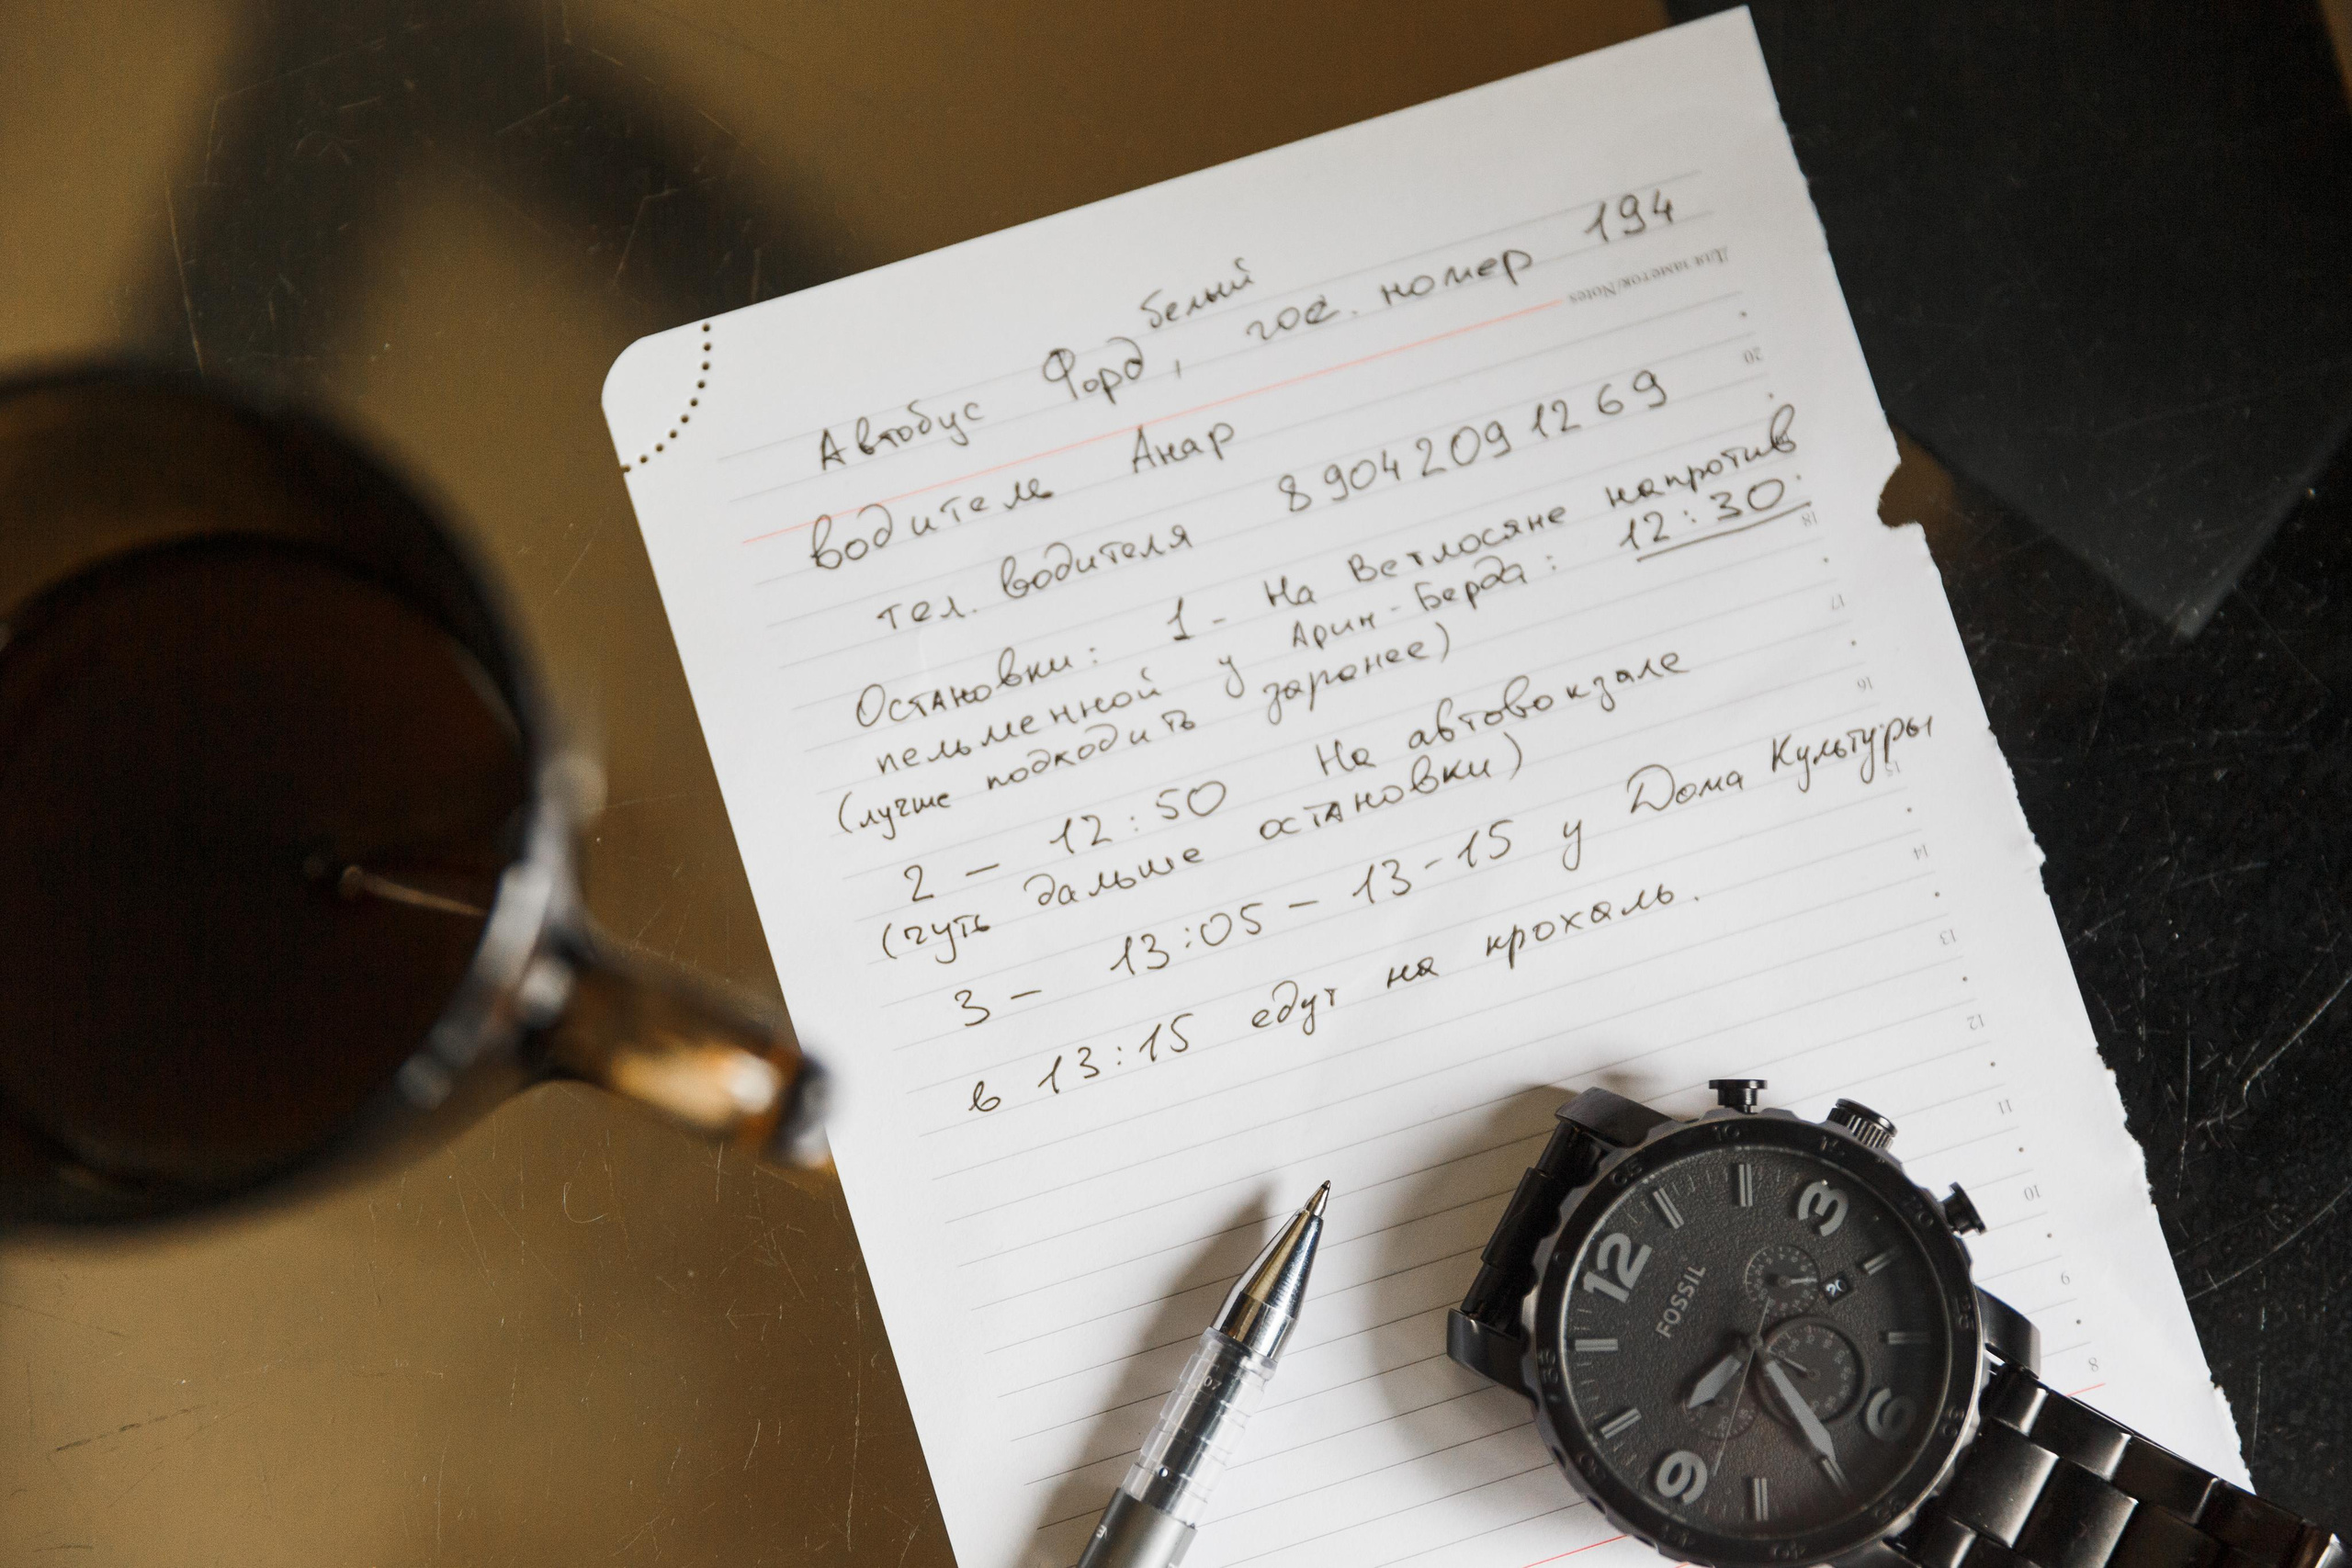 белый
Автобус Форд, гос. номер 194
Для заметок/Notes
водитель Анар
тел. водителя 8 904 209 12 69
Остановки: 1 - На Ветлосяне напротив
пельменной у Арин-Берда: 12:30.
(лучше подходить заранее)
2 - 12:50 На автовокзале
(чуть дальше остановки)
3 - 13:05 - 13-15 у Дома Культуры
в 13:15 едут на крохаль.
20
18
17
16
15
14
13
12
11
10
9
8
12
3
6
9
FOSSIL
20